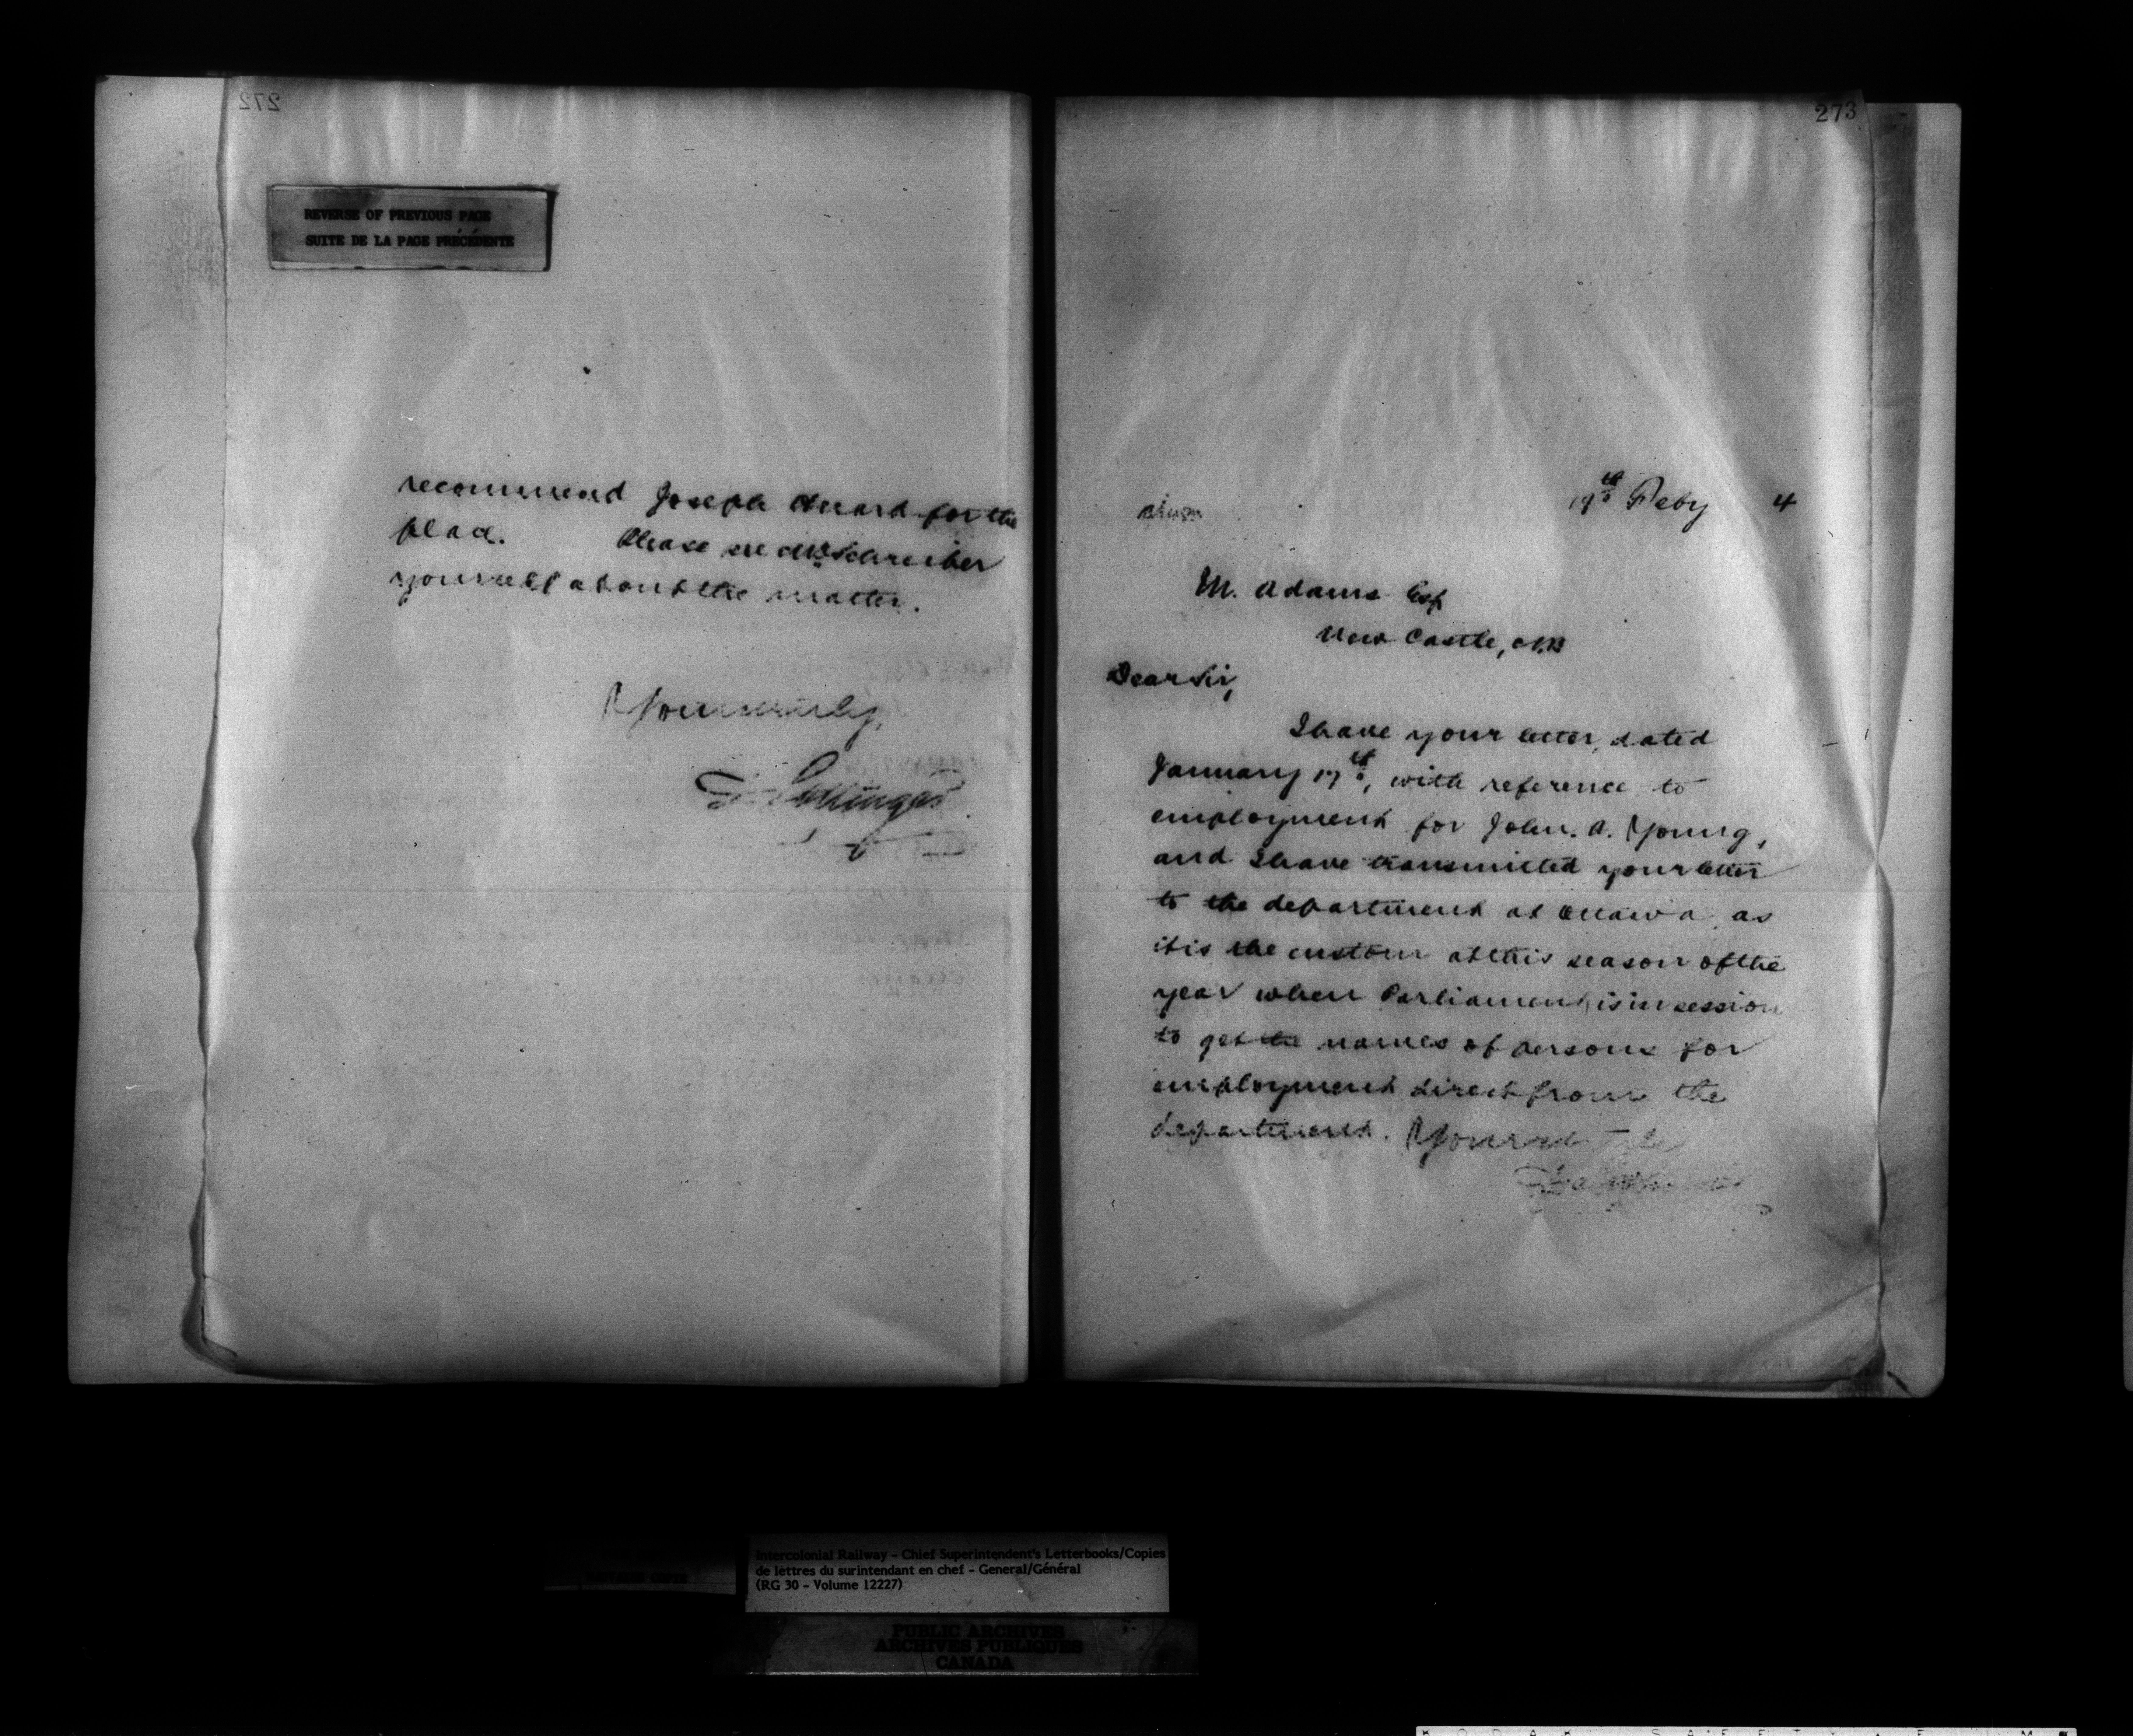 272
REVERSE OF PREVIOUS PAGE
SUITE DE LA PAGE PRÉCÉDENTE
recommend Joseph Huard for the
place. Please see Mr Schreiber
yourself about the matter.
Yours truly,
D. Pottinger
273
19th Feby 4
M. Adams Esq
New Castle, N.B
Dear Sir,
I have your letter, dated
January 17th, with reference to
employment for John. A. Young,
and I have transmitted your letter
to the department at Ottawa, as
it is the custom at this season of the
year when Parliament is in session
to get the names of persons for
employment direct from the
department. Yours truly
D. Pottinger
Intercolonial Railway – Chief Superintendent's Letterbooks/Copies
de lettres du surintendant en chef – General/Général
(RG 30 – Volume 12227)
PUBLIC ARCHIVES
ARCHIVES PUBLIQUES
CANADA